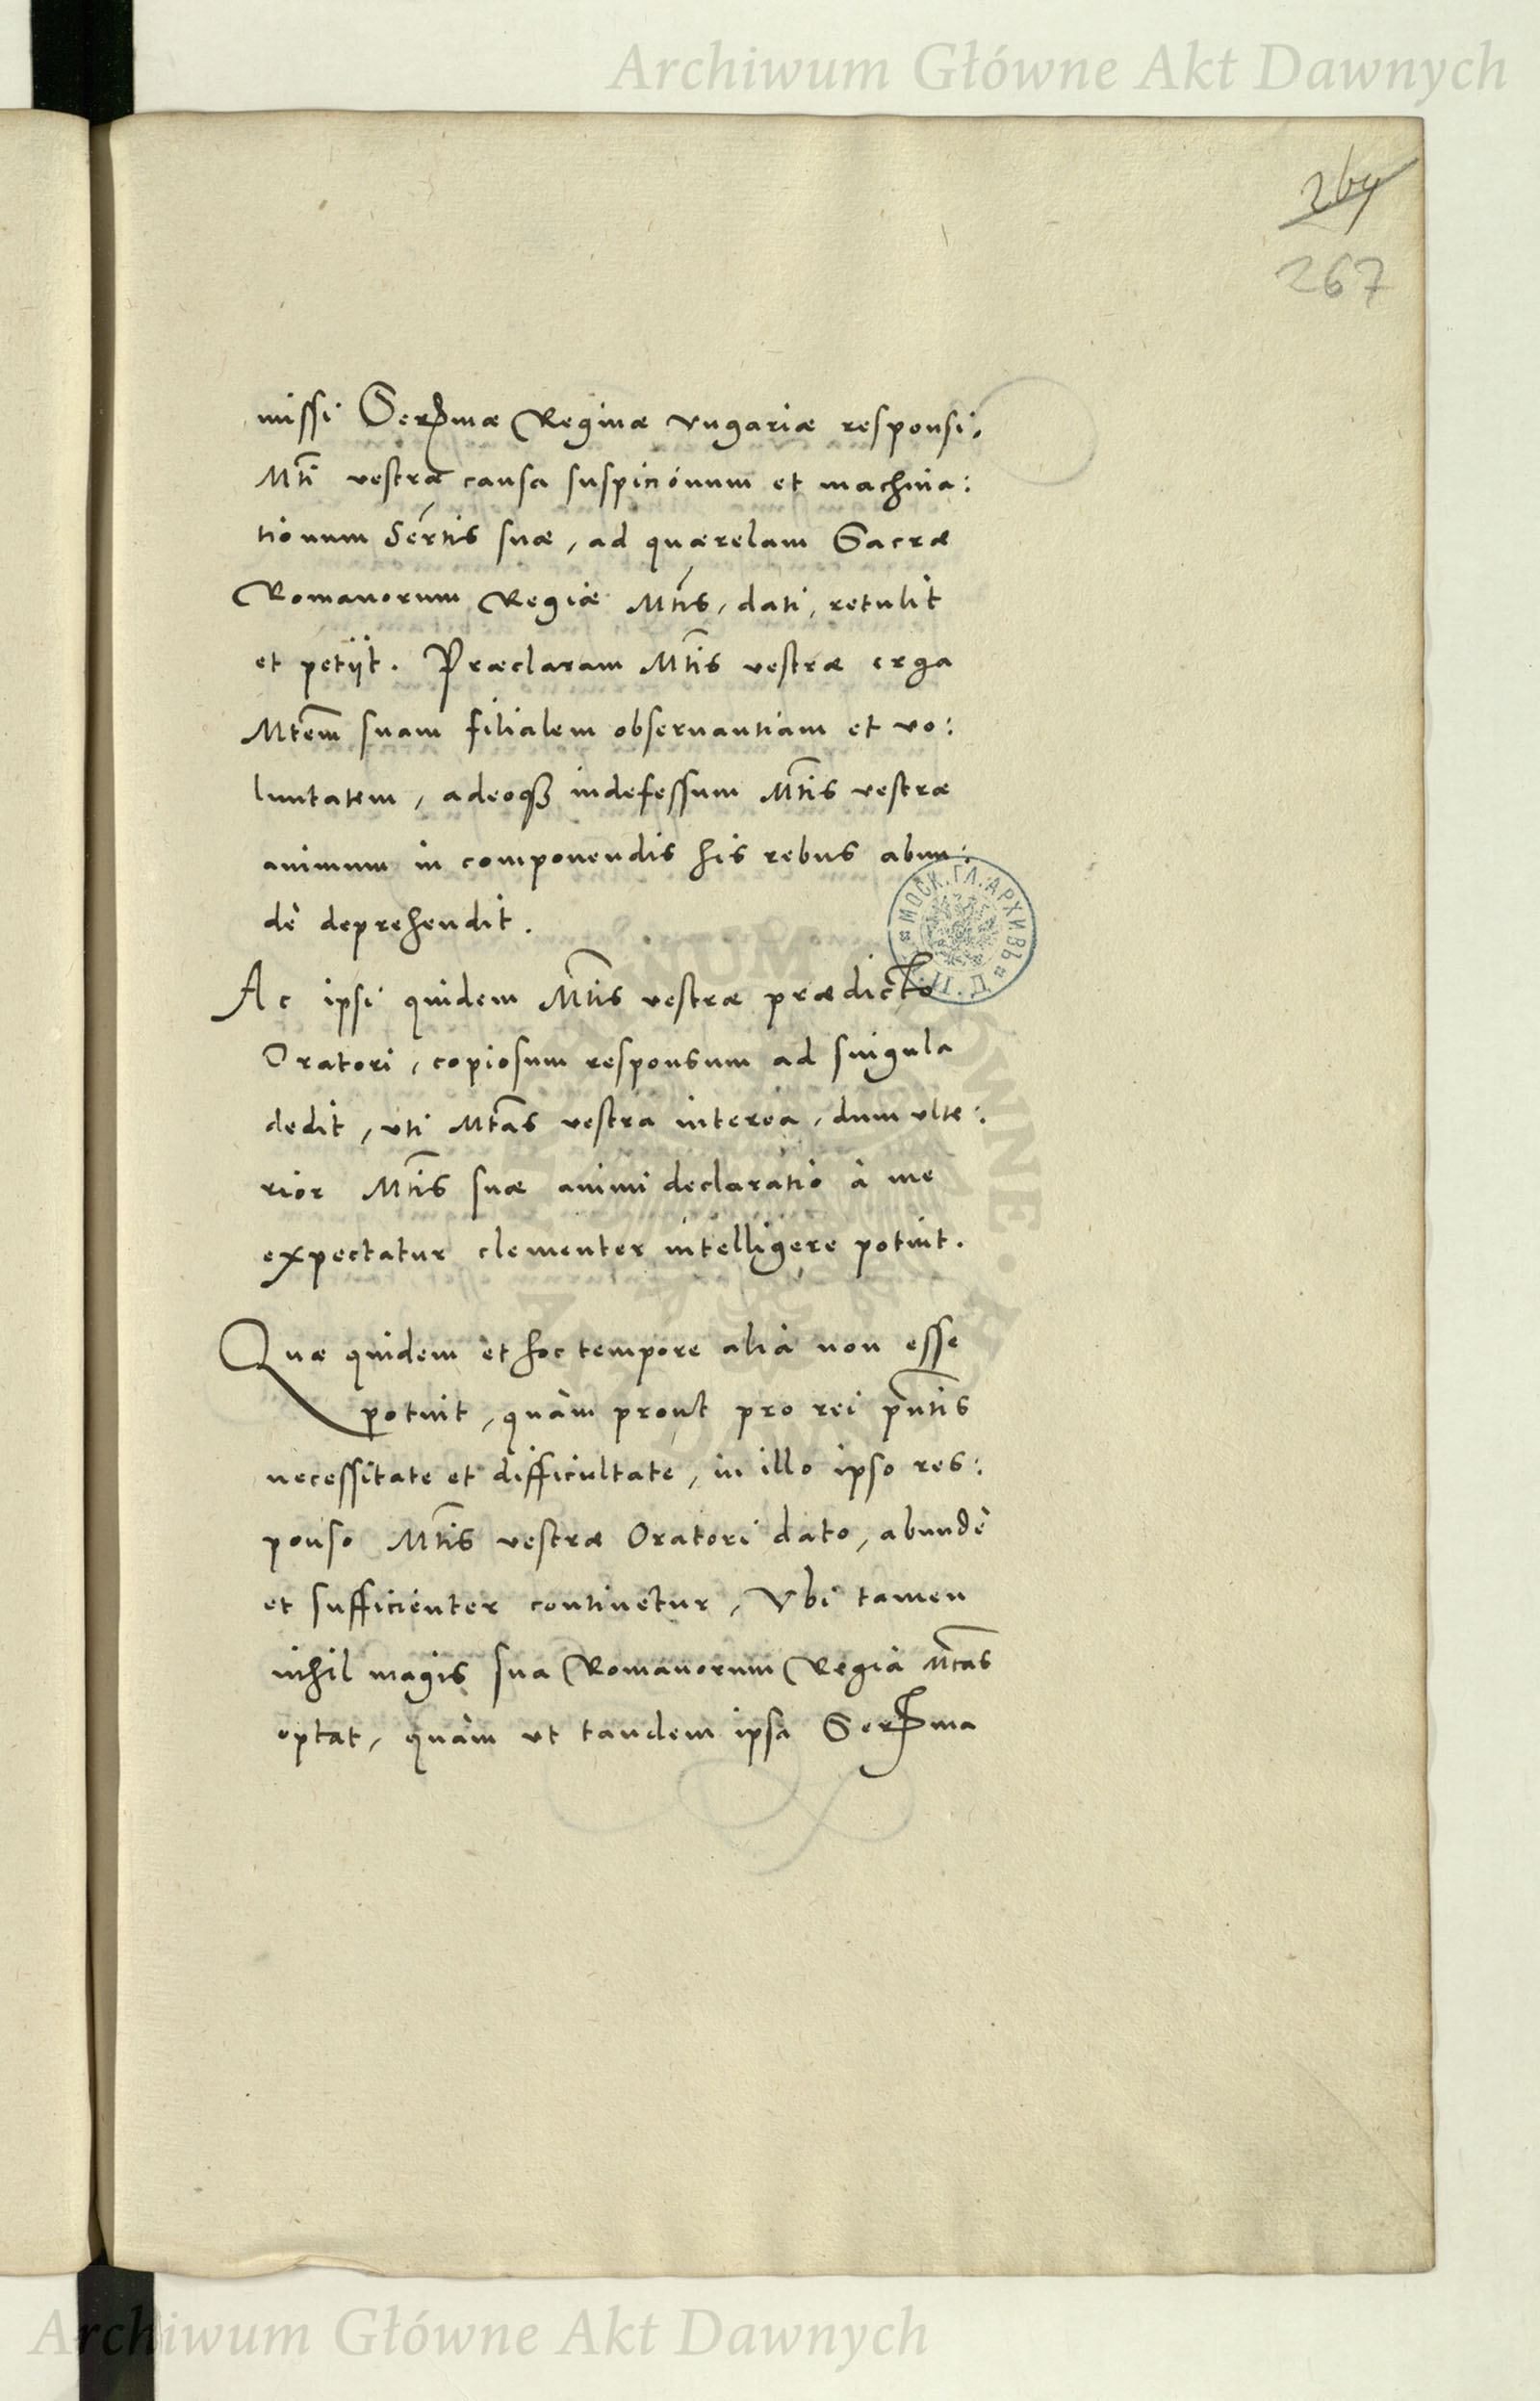 Archiwum Główne Akt Dawnych
264
267
missi Serᵐᵃᵉ Reginæ Vngariæ responsi,
Mti vestræ causa suspicionum et machina:
tionum Sertis suæ, ad quærelam Sacræ
Romanorum Regiæ Mtis, dati, retulit
et petijt. Præclaram Mtis vestræ erga
Mtem suam filialem obseruantiam et vo:
luntatem, adeoq3 indefessum Mtis vestræ
animum in componendis his rebus abun:
dè deprehendit.
Ac ipsi quidem Mtis vestræ prædicto
Oratori, copiosum responsum ad singula
dedit, vti Mtas vestra interea, dum vlte:
rior Mtis suæ animi declaratio à me
expectatur clementer intelligere potuit.
Quæ quidem et hoc tempore alia non esse
potuit, quàm prout pro rei pntis
necessitate et difficultate, in illo ipso res:
ponso Mtis vestræ Oratori dato, abundè
et sufficienter continetur, Vbi tamen
nihil magis sua Romanorum Regia Mtas
optat, quàm ut tandem ipsa Serma
МОСК. ГЛ. АРХИВЪ
Archiwum Główne Akt Dawnych